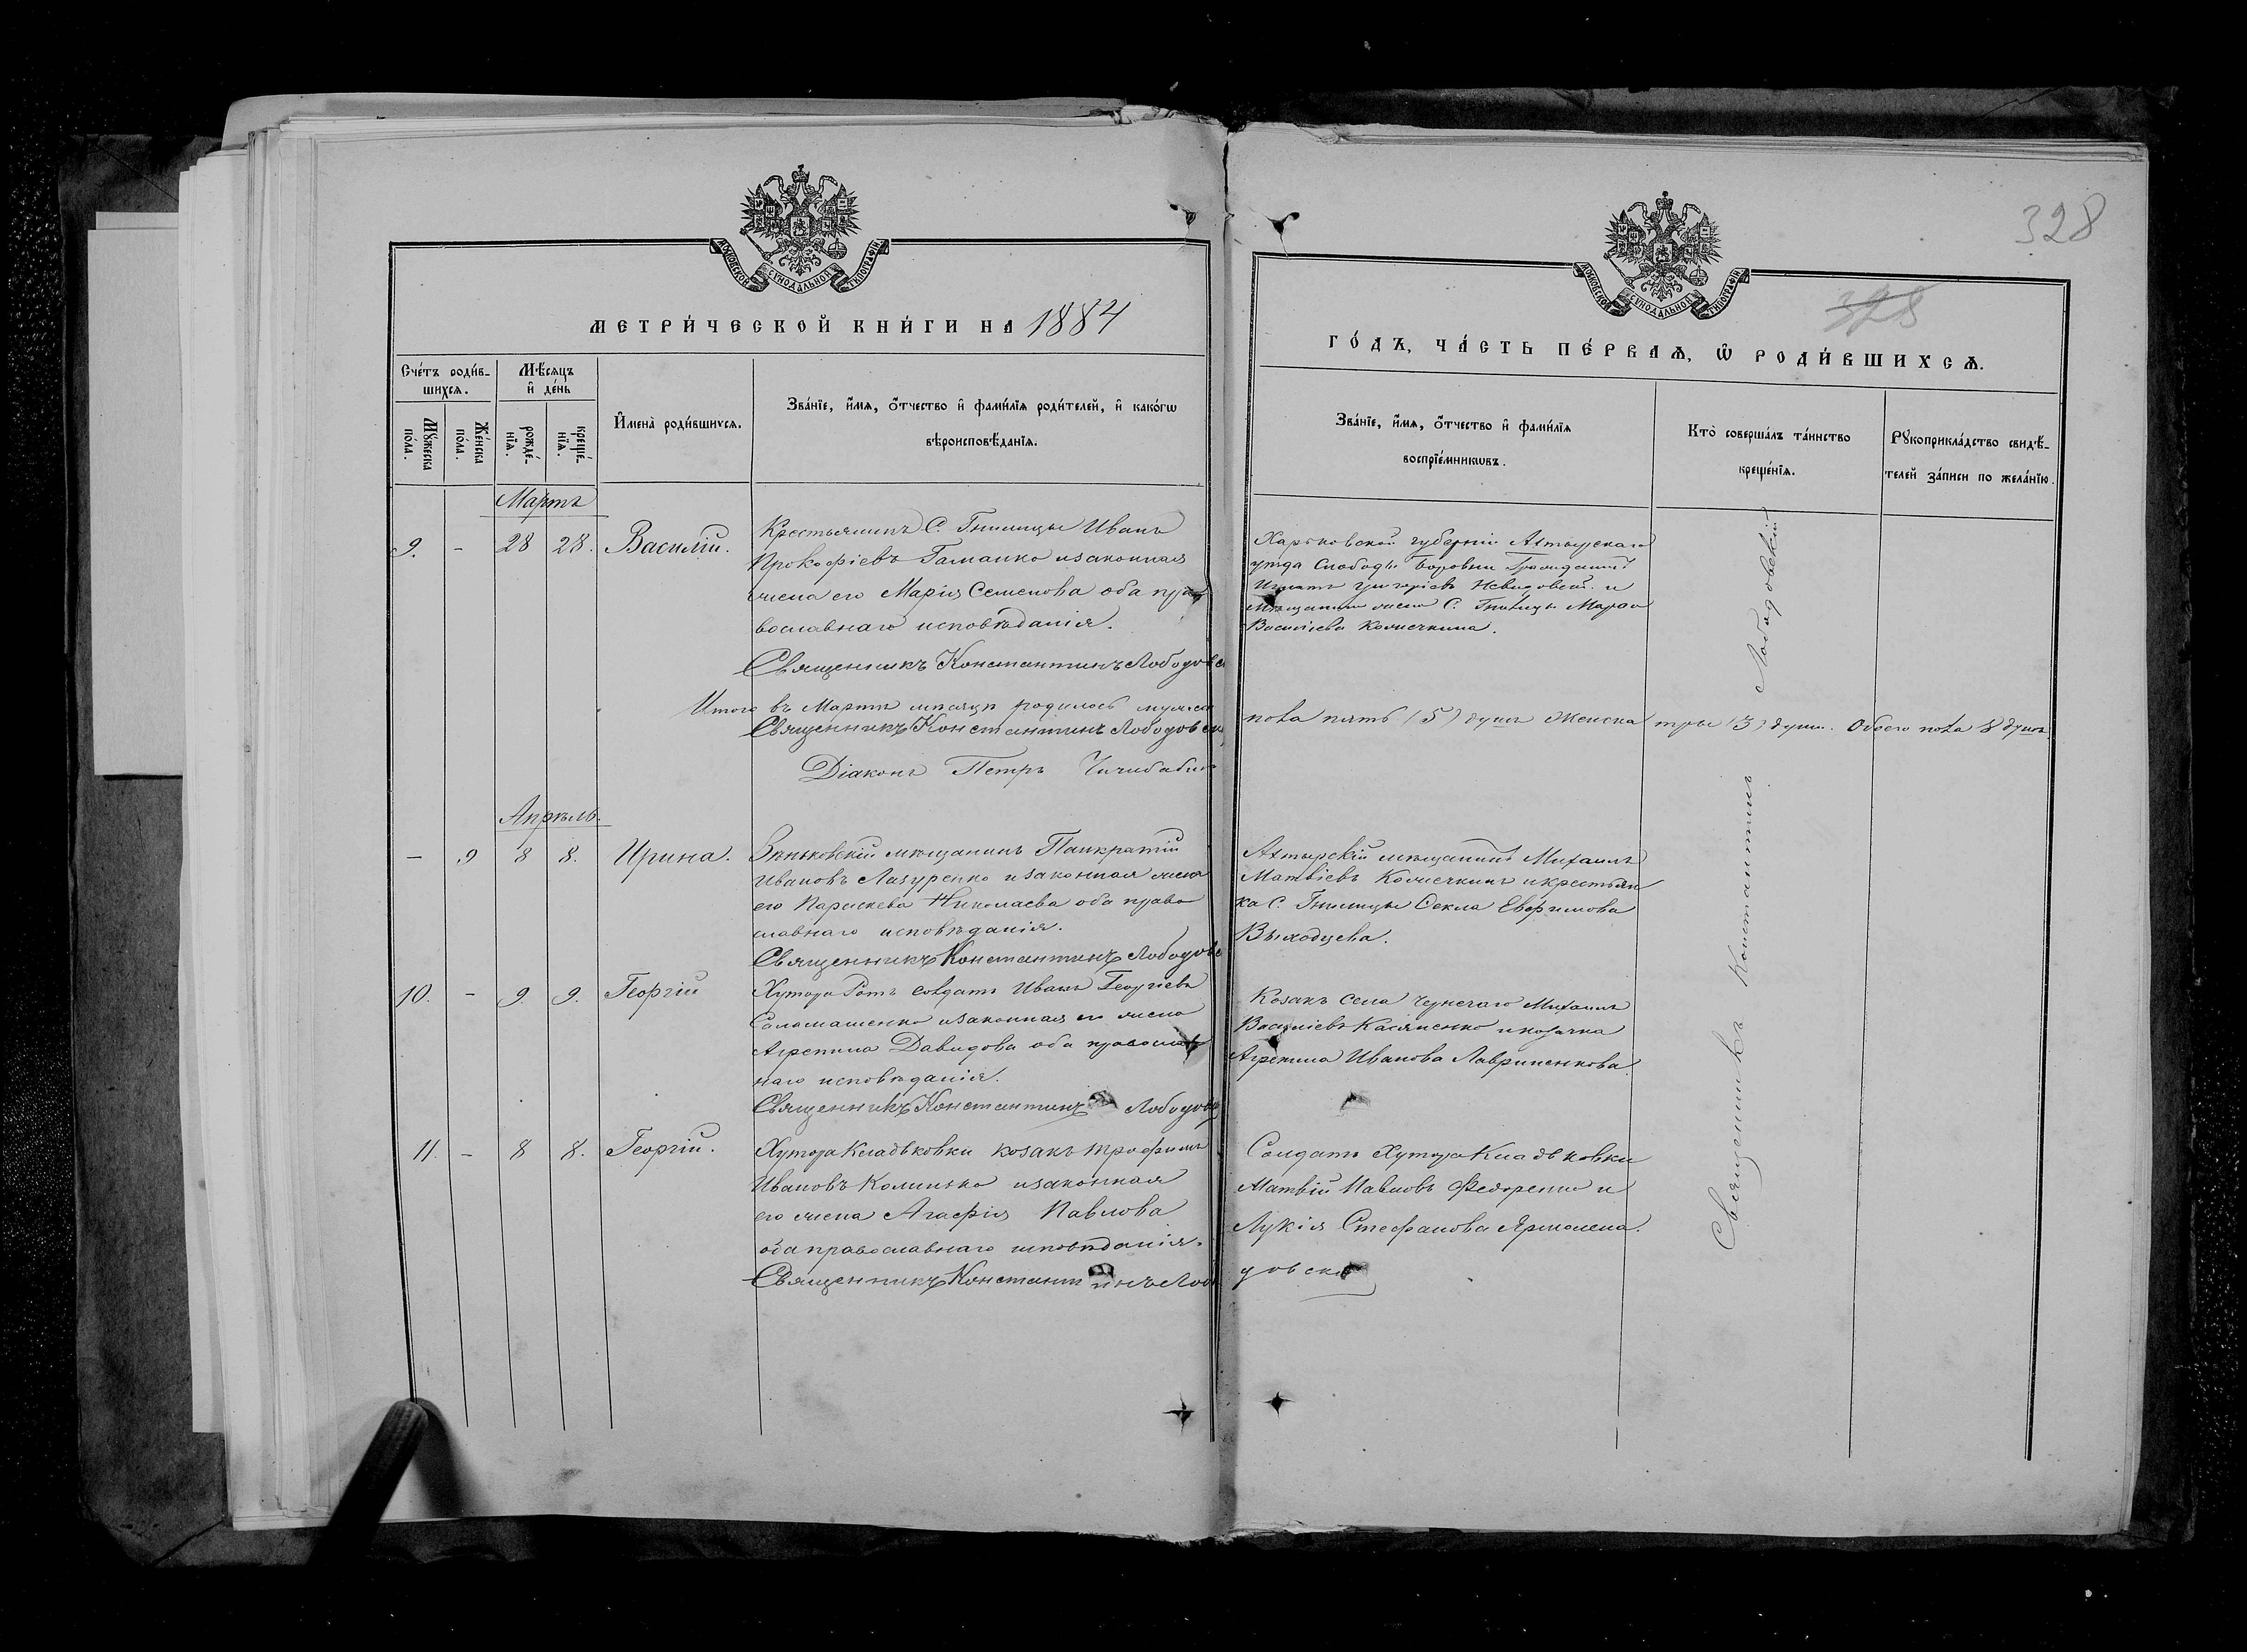 328
328
МОСКОВСКОЙ СУНОДАЛЬНОЙ ТИПОГРАФІИ
МЕТРИ́ЧЕСКОЙ КНИ́ГИ НА 1884
Сче́тъ роди́в-
шихся.
Мѣ́сяцъ
и҆ де́нь
Мꙋ́жеска
по́ла.
Же́нска
по́ла.
рожде́-
нїя.
креще́-
нїя.
И҆мена̀ роди́вшихся.
Зва́нїе, и҆́мя, ѻ҆́тчество и҆ фами́лїя роди́телей, и҆ како́гѡ
вѣроисповѣ́данїя.
Мартъ
9. - 28 28. Василій.
Крестьянинъ С. Гнилицы Иванъ
Прокофіевъ Гаманко и законная
жена его Марія Семенова оба пра
вославнаго исповѣданія.
Священникъ Константинъ Лободовс
Итого въ Мартѣ мѣсяцѣ родилось мужеск
Священникъ Константинъ Лободовск
Діаконъ Петръ Чичибабин
Апрѣль.
- 9 8 8. Ирина.
Зѣньковскій мѣщанинъ Панкратій
Ивановъ Лазуренко и законная жена
его Параскева Николаева оба право
славнаго исповѣданія.
Священникъ Константинъ Лободовс
10. - 9. 9. Георгій
Хутора Ротъ солдатъ Иванъ Георгіевъ
Саламашенко и законная его жена
Агрепина Давидова оба православ
наго исповѣданія.
Священникъ Константинъ Лободовс
11. - 8 8. Георгій.
Хутора Кладьковки козакъ Трофимъ
Ивановъ Колинько и законная
его жена Агафія Павлова
оба православнаго исповѣданія.
Священникъ Константинъ Лобо
МОСКОВСКОЙ СУНОДАЛЬНОЙ ТИПОГРАФІИ
ГО́ДЪ, ЧА́СТЬ ПЕ́РВАѦ, Ѽ РОДИ́ВШИХСѦ.
Зва́нїе, и҆́мя, ѻ҆́тчество и҆ фами́лїя
воспрїе́мникѡвъ.
Кто̀ соверша́лъ та́инство
креще́нїя.
Рꙋкоприкла́дство свидѣ́-
телей за́писи по жела́нїю.
Харьковской губерніи Ахтырскаго
уѣзда Слободы Боровни
и
жена С. Гнилицы
Василіева Колисчкина.
пола пять (5) душъ женска три (3) души. Обоего пола 8 душъ.
Ахтырскій мѣщанинъ Михаилъ
Матвіевъ и крестьян
ка С. Гнилицы Ѳекла Евфимова
Выходцева.
Козакъ села Чернечаго Михаилъ
Василіевъ Касяненко и козачка
Агрепина Иванова Лавриненкова.
Солдатъ Хутора Кладьковки
Матвій Павловъ Федоренко и
Лукія Стефанова
довскій
Священникъ Константинъ Лободовскій